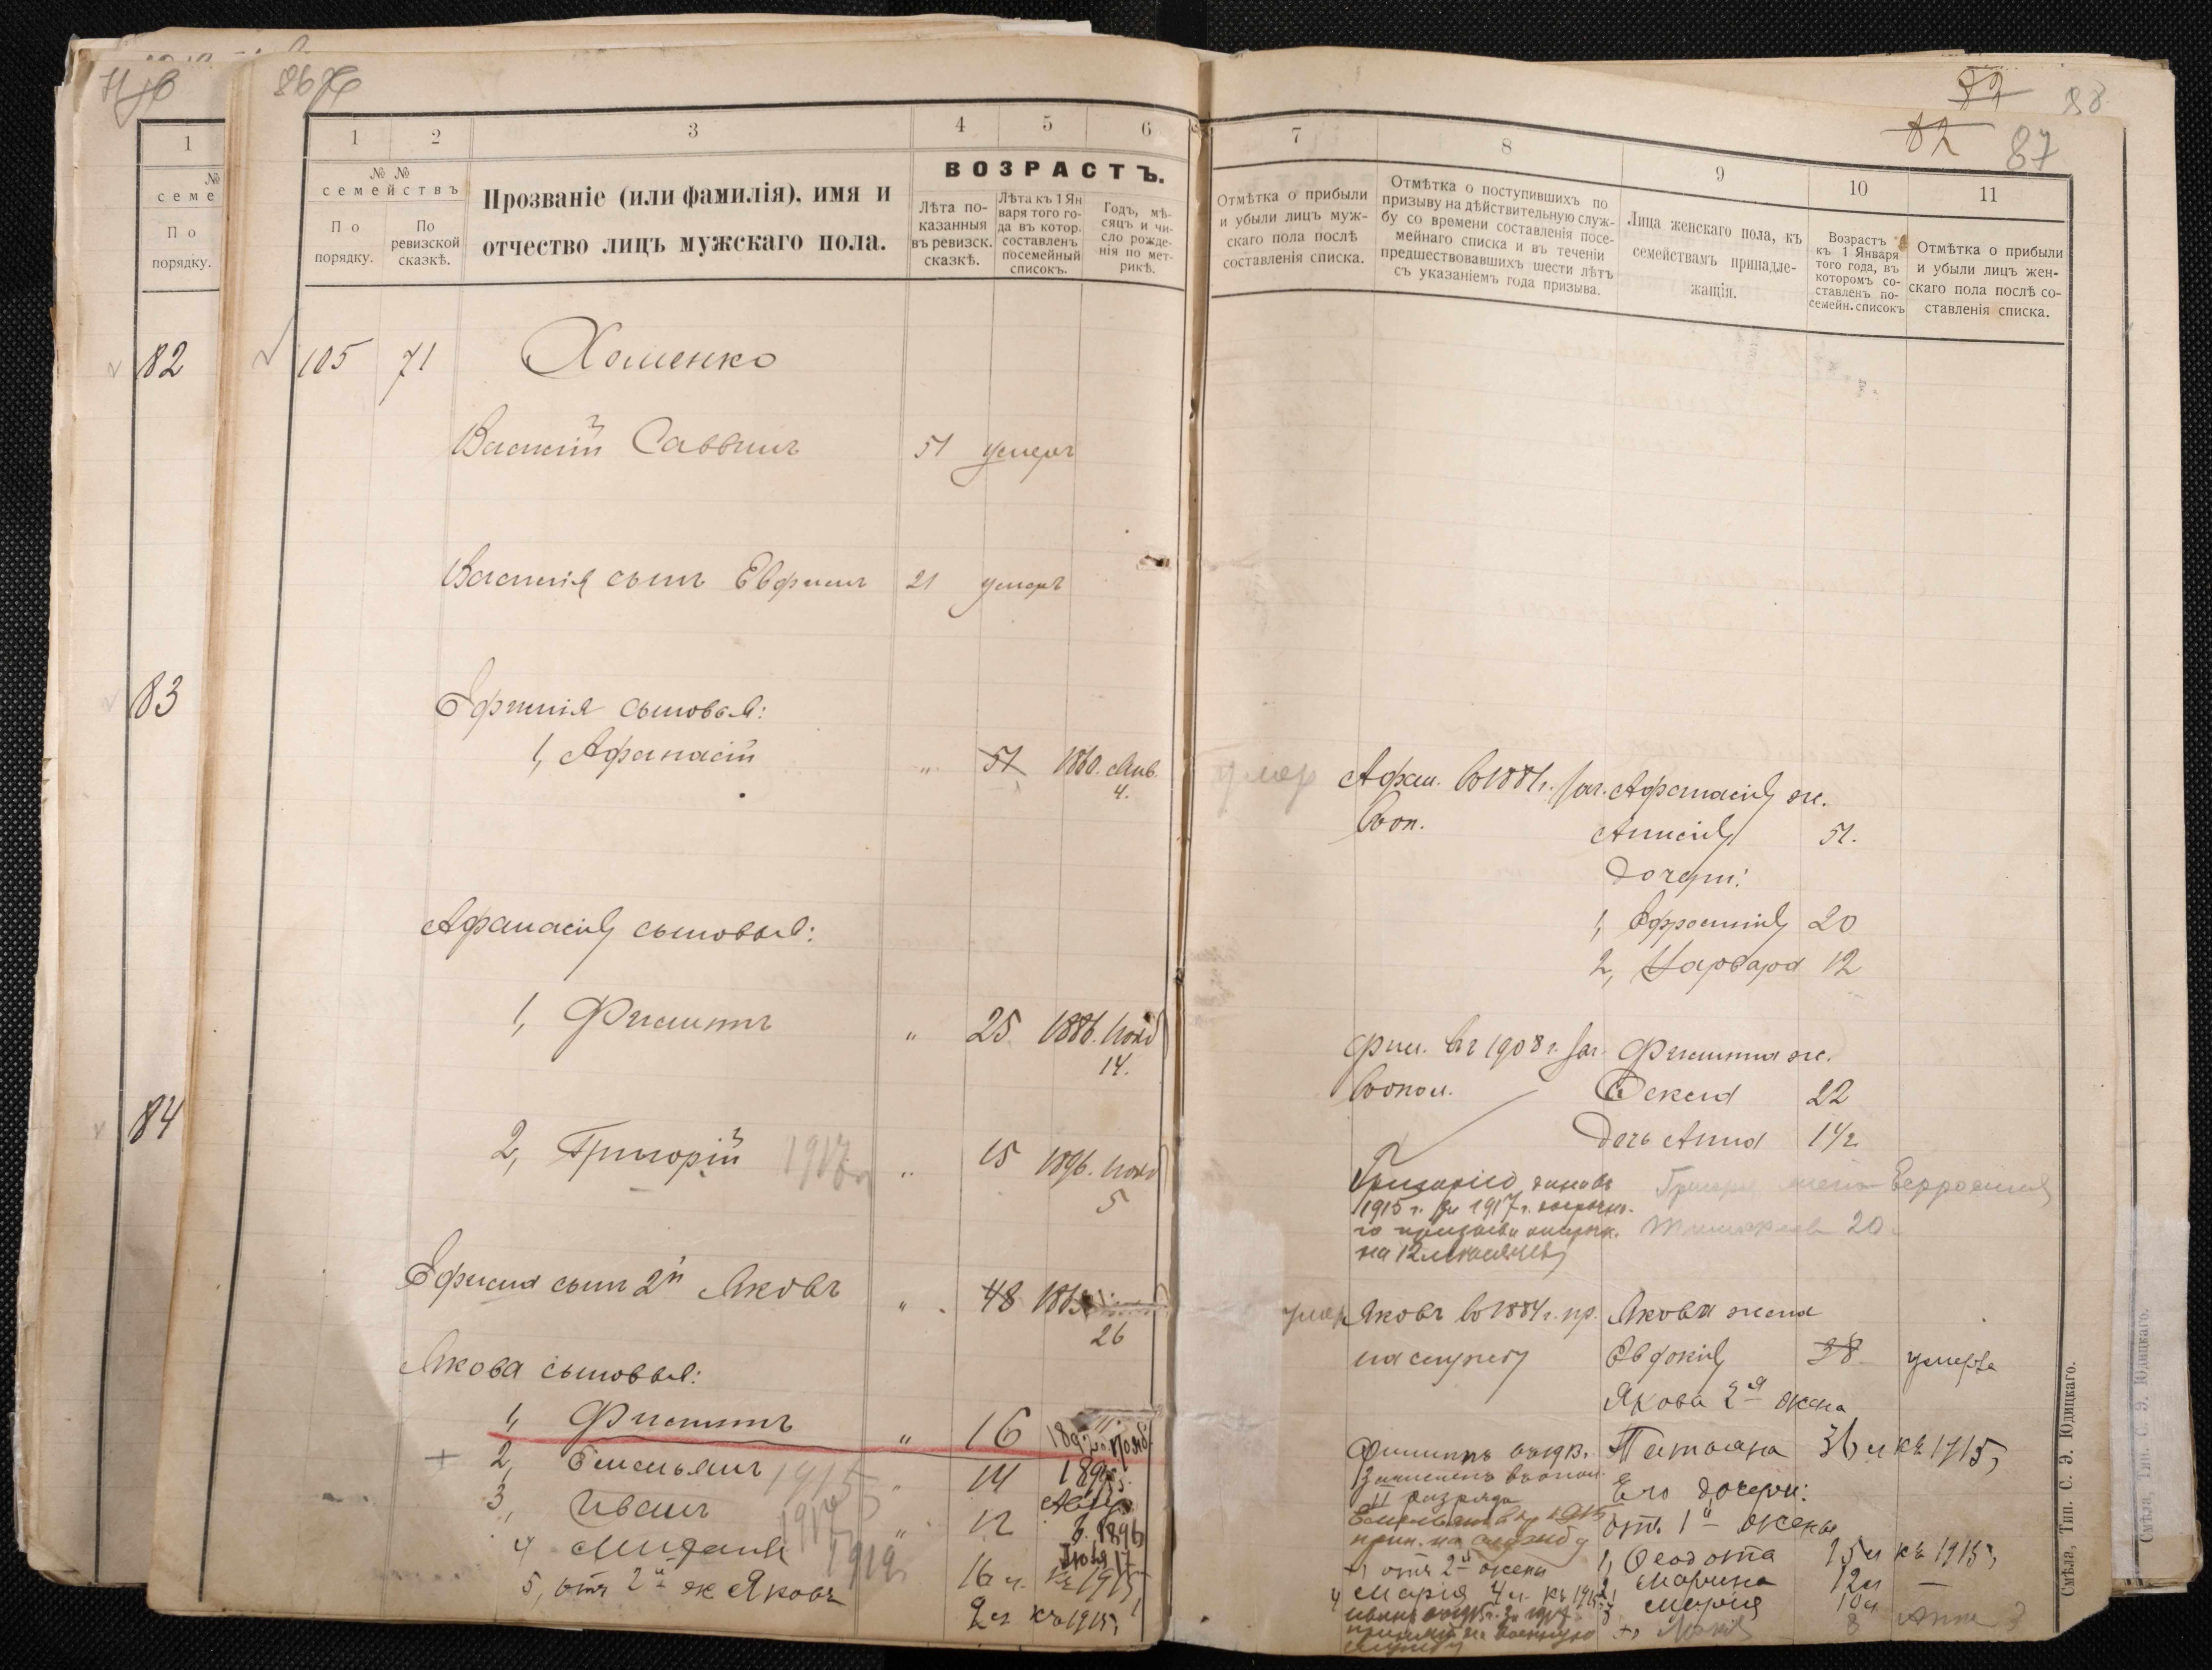 86
1
№
семе
По
порядку.
82
83
84
1 2 3 4 5 6
№ №
семействъ
По
порядку.
По
ревизской
сказкѣ.
Прозваніе (или фамилія), имя и
отчество лицъ мужскаго пола.
ВОЗРАСТЪ.
Лѣта по-
казанныя
въ ревизск.
сказкѣ.
Лѣта къ 1 Ян
варя того го-
да въ котор.
составленъ
посемейный
списокъ.
Годъ, мѣ-
сяцъ и чи-
сло рожде-
нія по мет-
рикѣ.
105 71 Хоменко
Василій Саввинъ 51 умеръ
Василія сынъ Евфимъ 21 умеръ
Ефимія сыновья:
1, Афанасій " 51 1860. Янв.
4.
Афанасія сыновья:
1, Филиппъ " 25 1886. Нояб
14.
2, Григорій 1917 " 15 1896. Нояб
5
Ефима сынъ 2й Яковъ " 48
26
Якова сыновья:
1, Филиппъ " 16 Нояб.
+ 2, Емельянъ 1915 " 14
3, Иванъ 1917 " 12 1896
4 1919 16 л. къ 1915
5, отъ 2й ж Якова 2 л. къ 1915,
82 88
82 87
7 8 9 10 11
Отмѣтка о прибыли
и убыли лицъ муж-
скаго пола послѣ
составленія списка.
Отмѣтка о поступившихъ по
призыву на дѣйствительную служ-
бу со времени составленія посе-
мейнаго списка и въ теченіи
предшествовавшихъ шести лѣтъ
съ указаніемъ года призыва.
Лица женскаго пола, къ
семействамъ принадле-
жащія.
Возрастъ
къ 1 Января
того года, въ
которомъ со-
ставленъ по-
семейн. списокъ
Отмѣтка о прибыли
и убыли лицъ жен-
скаго пола послѣ со-
ставленія списка.
умер Афан. въ 1881 г. зач. Афанасія ж.
въ оп. Анисія 51.
дочери:
1, Ефросинія 20
2, Варвара 12
Фил. въ 1908 г. зач. Филиппа ж.
въ опол. Оксена 22
дочь Анна 1 1/2
1915 г. за 1917 г. 
на 12 Григорія жена Ефросинія
20
умер Яковъ въ 1884 г. пр. Якова жена
на службу Евдокія 38 умерла
Якова 2я жена
Филиппъ въ 1913. Татьяна 36 л къ 1915,
II разряда Его дочери:
1915 отъ 1й жены
прин. на службу
отъ 2й жены 1, Феодота 15 л къ 1915,
4 Марія 4 л. къ 1915 2 Марина 12 л —
3 Марія 10 л
8 Анна 3
Смѣла, Тип. С. Э. Юдицкаго.
Смѣла, Тип. С. Э. Юдицкаго.